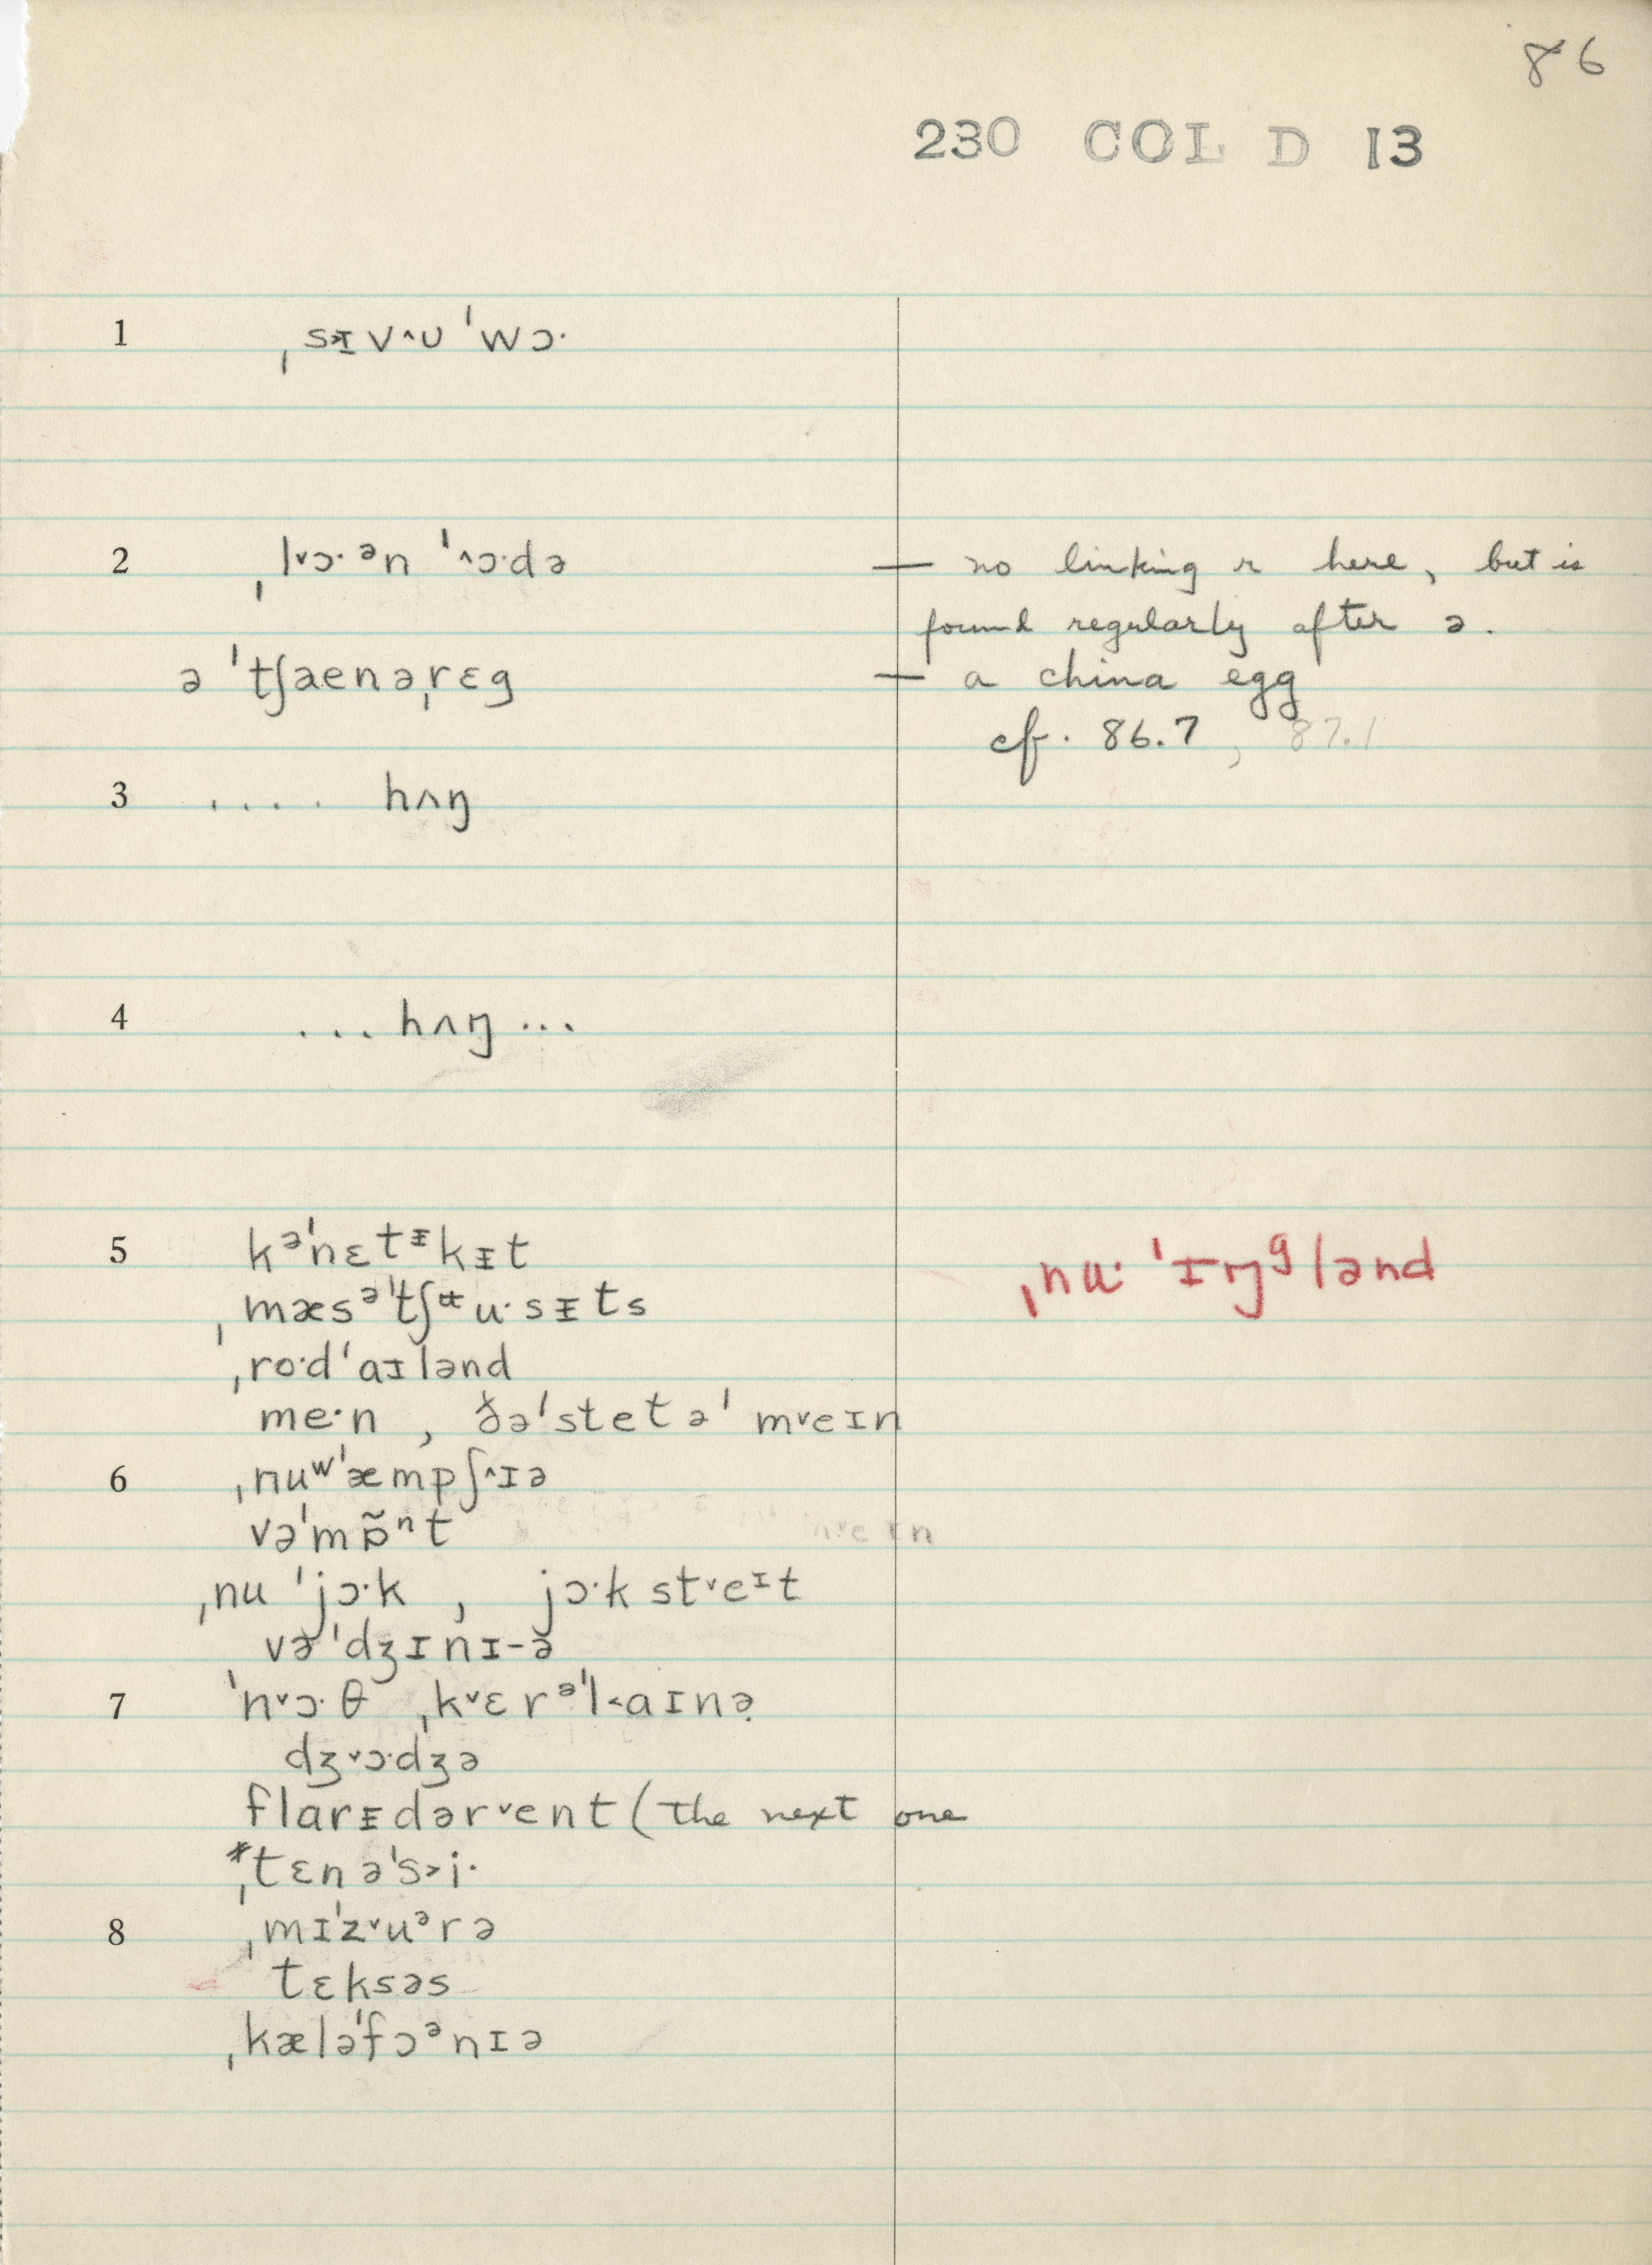 86
230 COL D 13
1 ˌsɪv˄u ˈwɔ·
2 ˌl˅ɔ·ᵊn ˈ˄ɔ·də — no linking r here, but is
found regularly after ə.
ə ˈtʃaenəˌrɛg — a china egg
cf. 86.7, 87.1
3 .... hʌŋ
4 ... hʌŋ ...
5 kᵊˈnɛtᵻkᵻt ˌnu· ˈɪŋᵍlənd
ˌmæsᵊˈtʃʉu·sᵻts
ˌro·dˈaɪlənd
me·n , ðəˈstetəˈm˅eɪn
6 ˌnuʷˈæmpʃ˄ɪə
vəˈmɒ̃ⁿt
ˌnu ˈjɔ·k , jɔ·k st˅eᶦt
vəˈdʒɪnɪ-ə
7 ˈn˅ɔ·θ ˌk˅ɛrᵊˈl˂aɪnə
dʒ˅ɔ·dʒə
flarᵻdər˅ent (the next one
*ˌtɛnəˈs˃i·
8 ˌmɪˈz˅uᵊrə
tɛksəs
ˌkæləˈfɔᵊnɪə